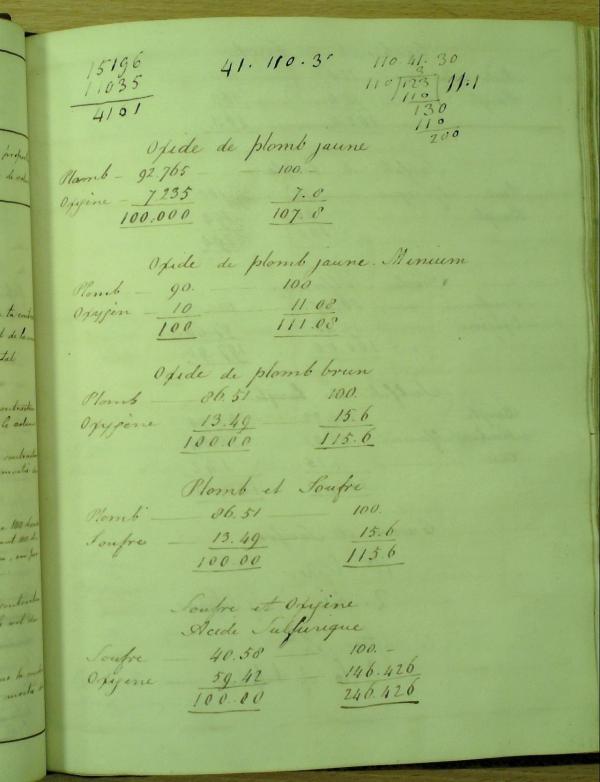 15196 41. 110. 30 110. 41. 30
11035 3
4101 110 123 11.1
110
130
110
200
Oxide de plomb jaune
Plomb – 92.765 – 100. –
Oxijène – 7235 7.8
100.000 107.8
Oxide de plomb jaune. Minium
Plomb – 90. – 100
Oxygèn – 10 11.08
100 111.08
Oxide de plomb brun
Plomb – 86.51 100.
Oxygène 13.49 15.6
100.00 115.6
Plomb et Soufre
Plomb – 86.51 – 100.
Soufre – 13.49 15.6
100.00 115.6
Soufre et Oxijène
Acide Sulfurique
Soufre – 40.58 – 100. –
Oxijène – 59.42 146.426
100.00 246.426